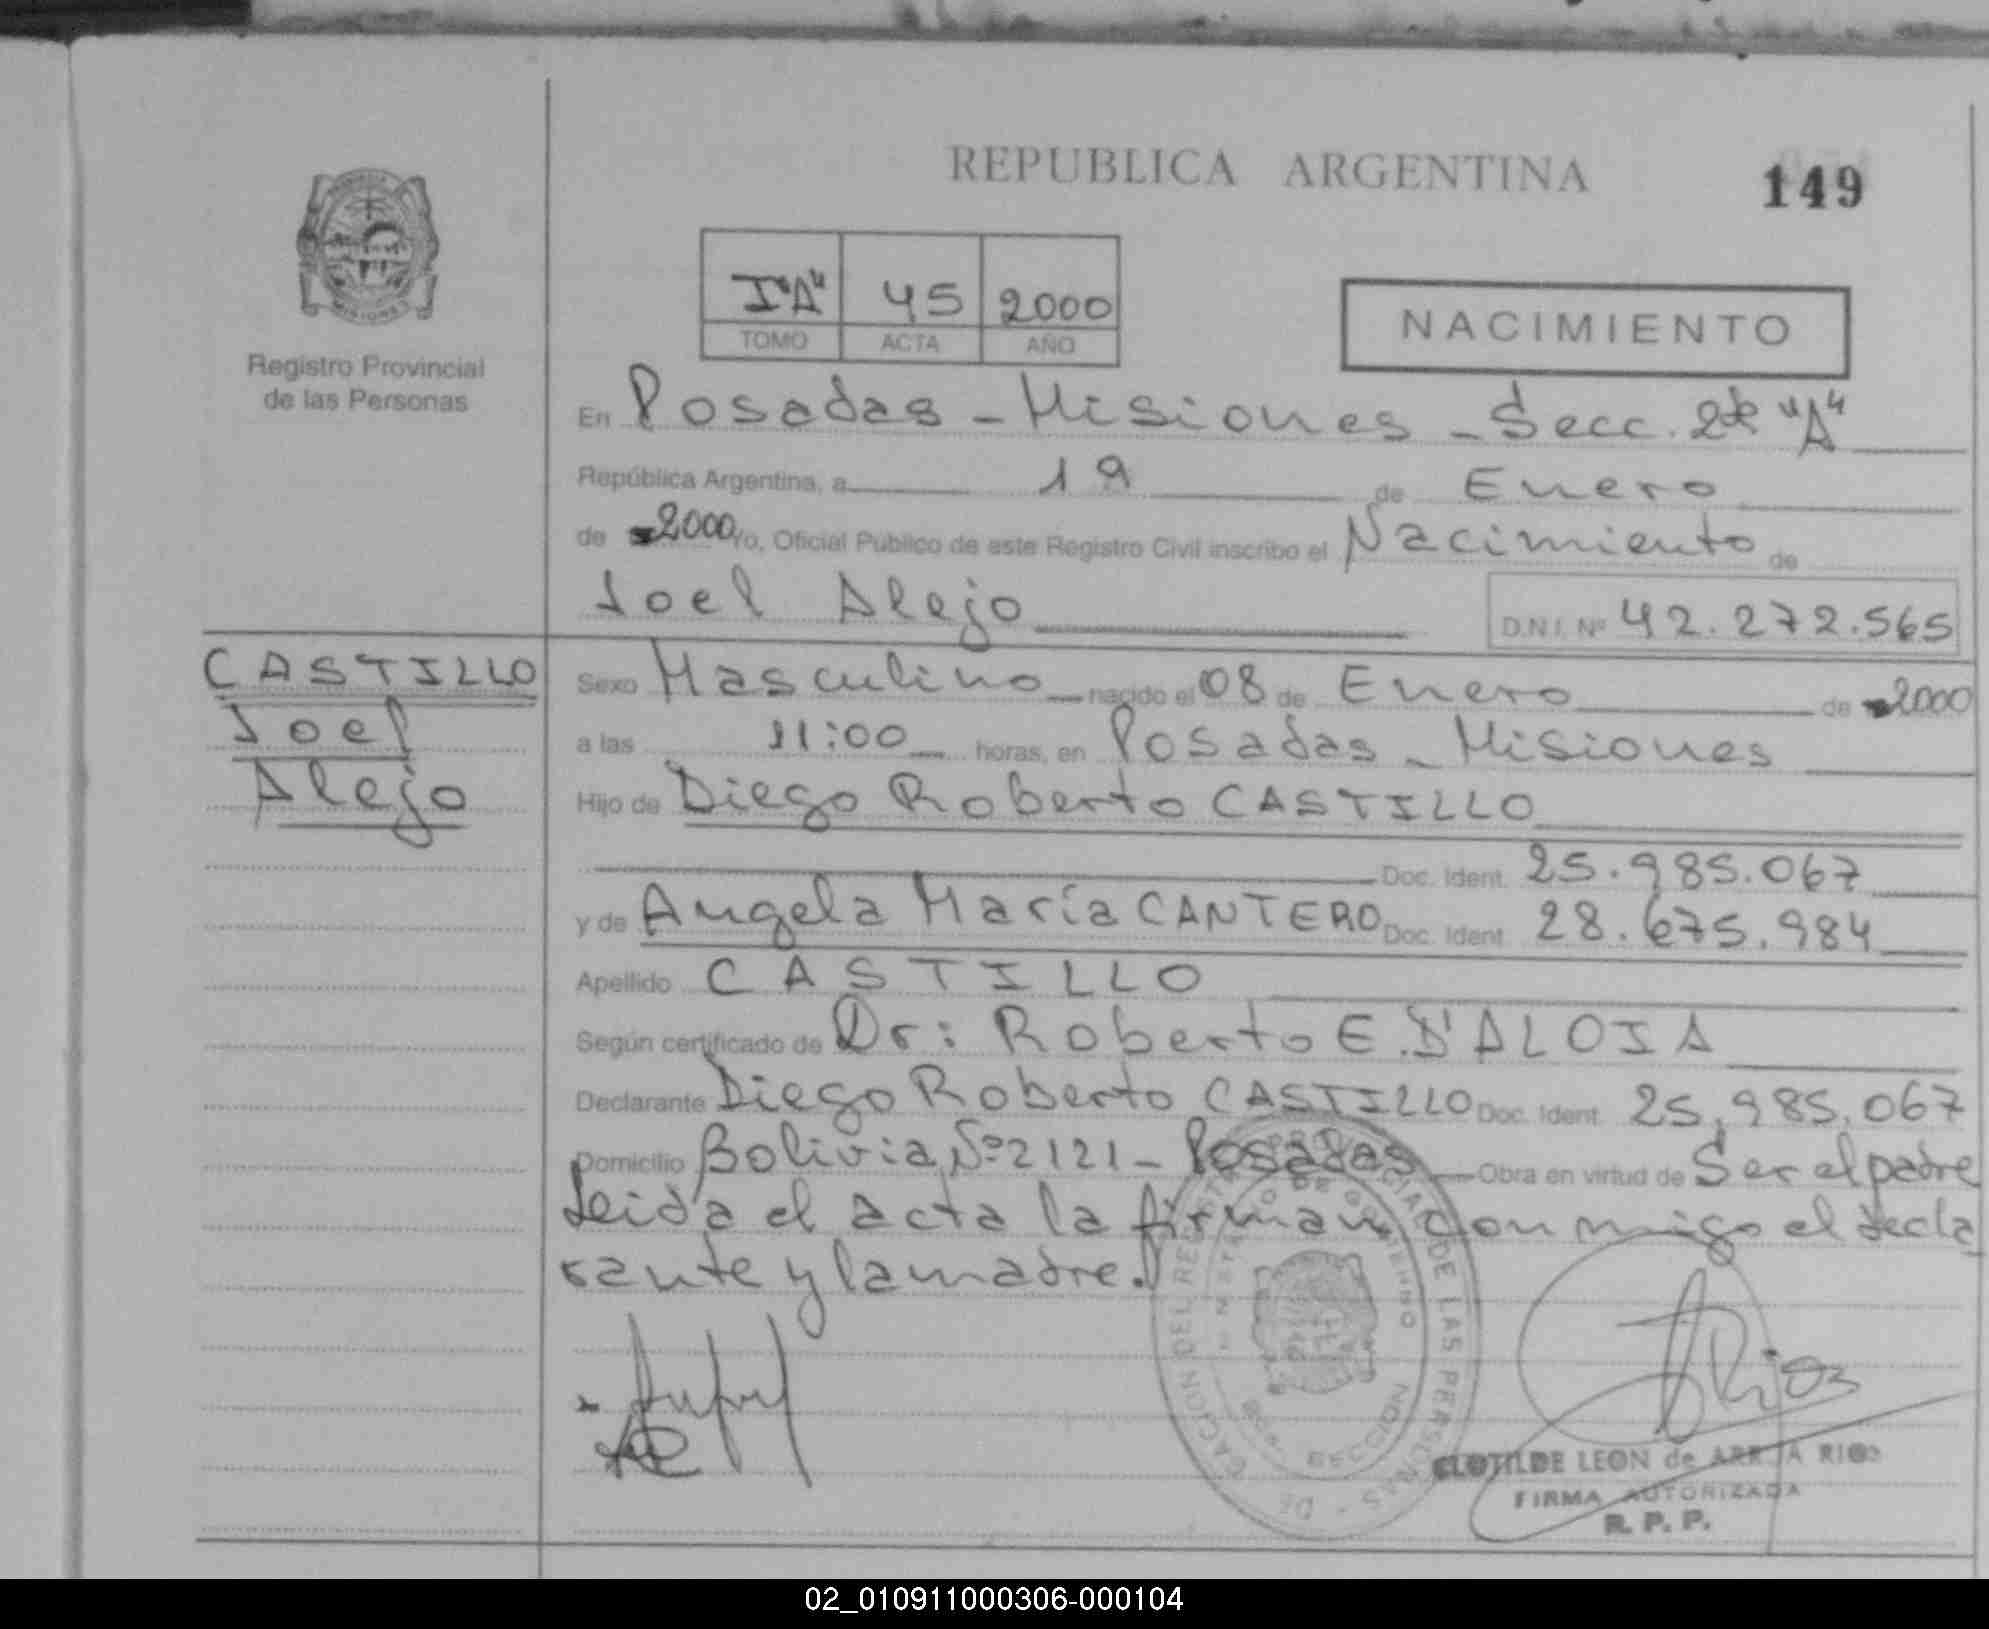 REPUBLICA ARGENTINA
149
Registro Provincial
de las Personas
MISIONES
I "A" 45 2000
TOMO ACTA AÑO
NACIMIENTO
En Posadas - Misiones - Secc. 2da "A"
República Argentina, a 19 de Enero
de 2000 Yo, Oficial Público de este Registro Civil inscribo el Nacimiento de
Joel Alejo D.N.I. Nº 42.272.565
CASTILLO
Joel
Alejo
Sexo Masculino nacido el 08 de Enero de 2000
a las 11:00 horas, en Posadas - Misiones
Hijo de Diego Roberto CASTILLO
Doc. Ident. 25.985.067
y de Angela María CANTERO Doc. Ident 28.675.984
Apellido CASTILLO
Según certificado de Dr: Roberto E. D'ALOIA
Declarante Diego Roberto CASTILLO Doc. Ident. 25.985.067
Domicilio Bolivia Nº 2121 - Posadas Obra en virtud de Ser el padre
Leida el acta la firman conmigo el decla
rante y la madre.
CLOTILDE LEON de ARRUA RIOS
FIRMA AUTORIZADA
R. P. P.
02_010911000306-000104